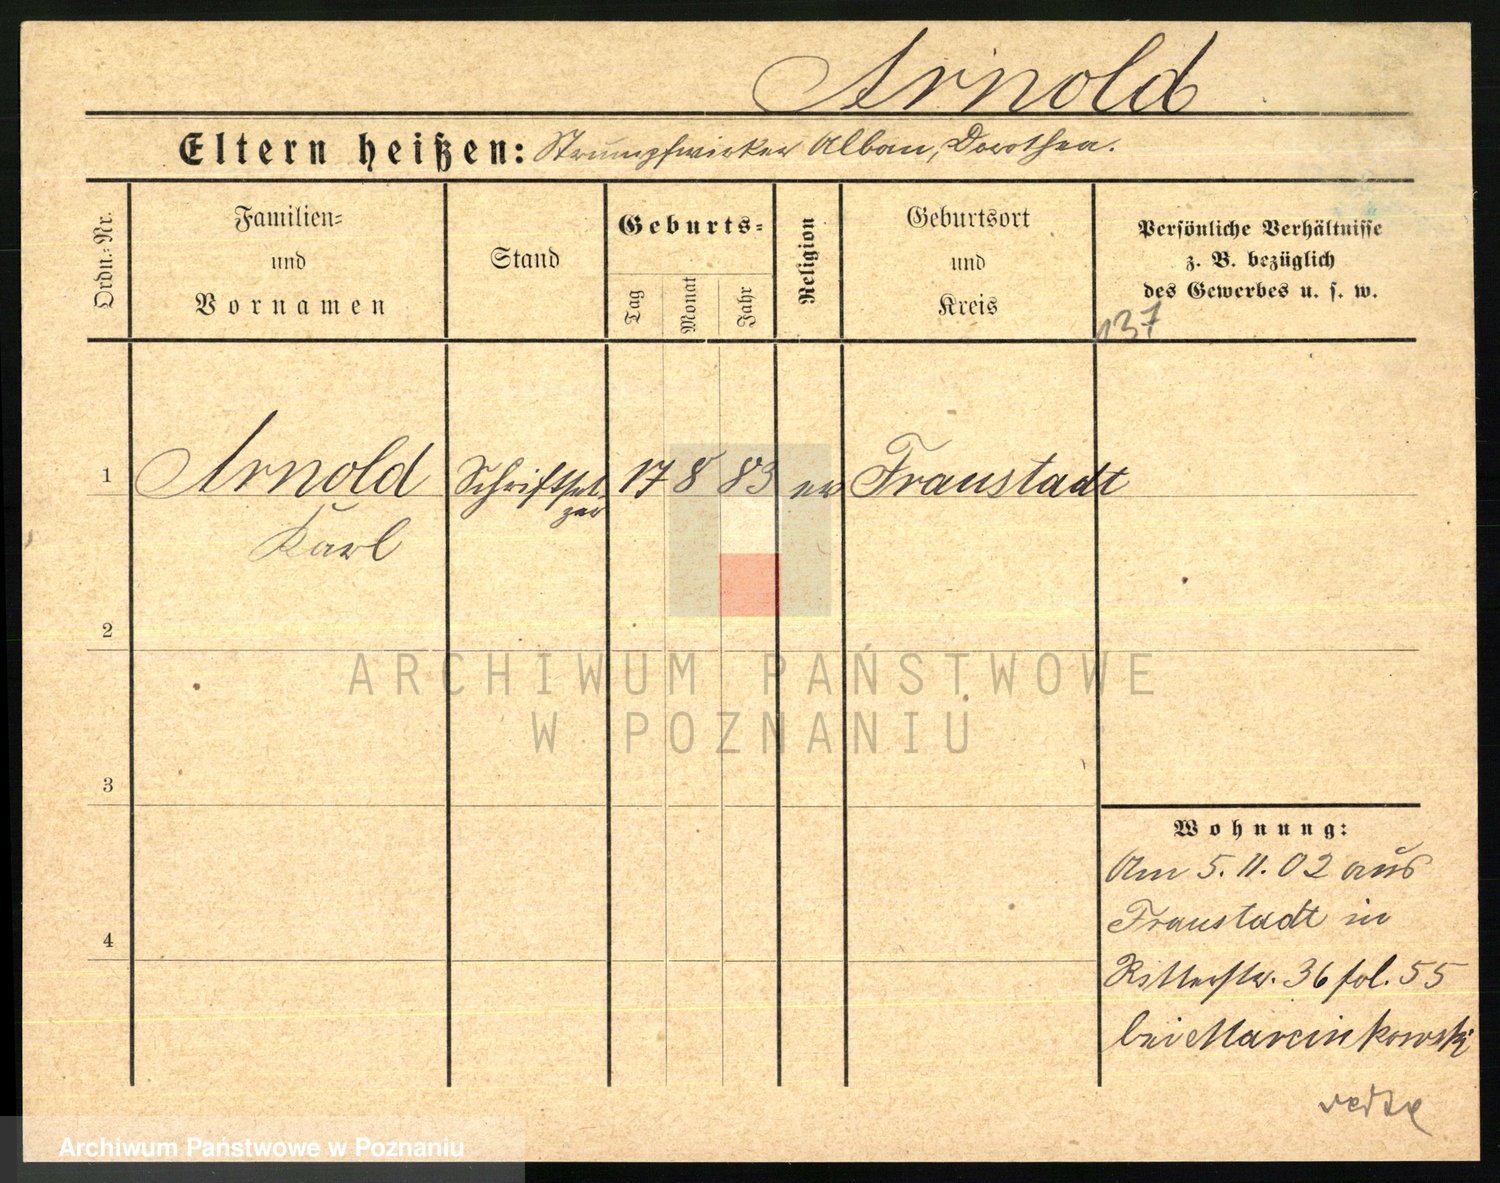 Arnold
Eltern heißen: Strumpfwirker Alban, Dorothea.
Ordn.-Nr.
Familien-
und
Vornamen
Stand
Geburts-
Tag
Monat
Jahr
Religion
Geburtsort
und
Kreis
Persönliche Verhältnisse
z. B. bezüglich
des Gewerbes u. s. w.
137
1 Arnold Schriftset- 17 8 83 ev Fraustadt
zer
Karl
2
ARCHIWUM PAŃSTWOWE
W POZNANIU
3
Wohnung:
Am 5.11.02 aus
Fraustadt in
4
Ritterstr. 36 fol. 55
bei Marcinkowski
Archiwum Państwowe w Poznaniu